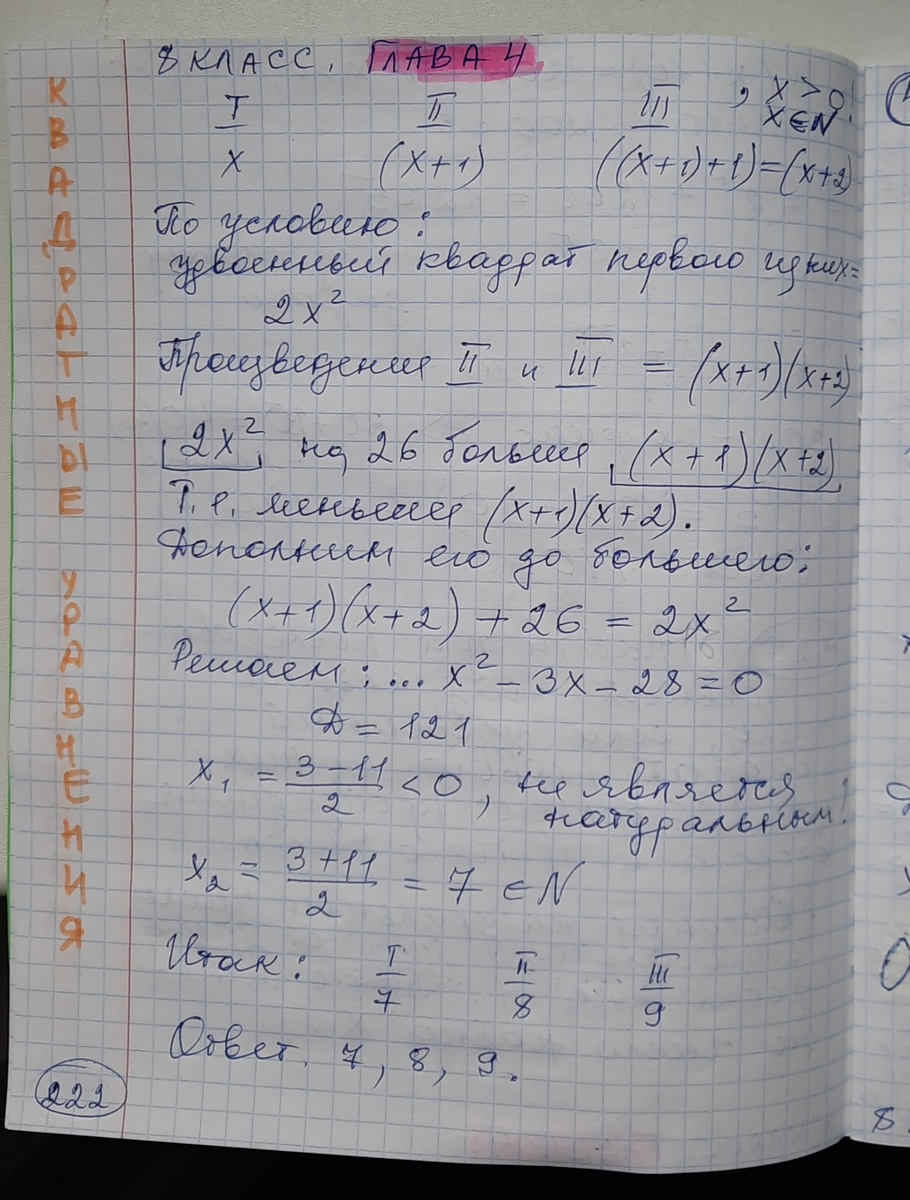 8 КЛАСС. ГЛАВА 4
I II III , x > 0
x ∈ N.
x (x+1) ((x+1)+1)=(x+2)
По условию:
удвоенный квадрат первого из них =
2x²
Произведение II и III = (x+1)(x+2)
2x² на 26 больше (x+1)(x+2)
Т.е. меньшее (x+1)(x+2).
Дополним его до большего:
(x+1)(x+2) + 26 = 2x²
Решаем: ... x² - 3x - 28 = 0
D = 121
x₁ = (3-11)/2 < 0, не является
натуральным!
x₂ = (3+11)/2 = 7 ∈ N
Итак: I II III
7 8 9
Ответ. 7, 8, 9.
КВАДРАТНЫЕ УРАВНЕНИЯ
222
8